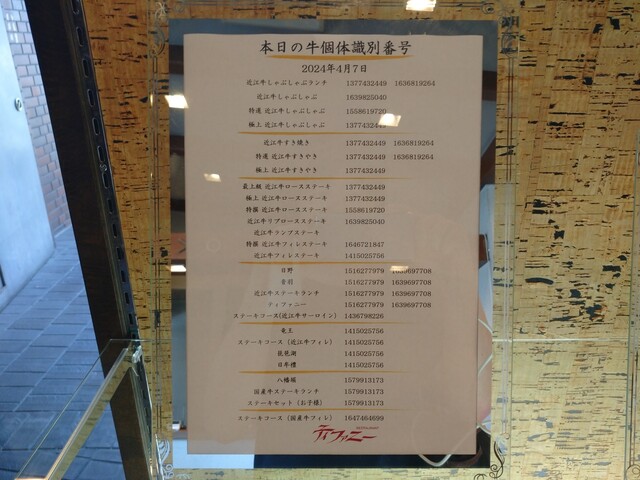 本日の牛個体識別番号
2024年4月7日
近江牛しゃぶしゃぶランチ 1377432449 1636819264
近江牛しゃぶしゃぶ 1639825040
特選 近江牛しゃぶしゃぶ 1558619720
極上 近江牛しゃぶしゃぶ 1377432449
近江牛すき焼き 1377432449 1636819264
特選 近江牛すきやき 1377432449 1636819264
極上 近江牛すきやき 1377432449
最上級 近江牛ロースステーキ 1377432449
極上 近江牛ロースステーキ 1377432449
特撰 近江牛ロースステーキ 1558619720
近江牛リブロースステーキ 1639825040
近江牛ランプステーキ
特撰 近江牛フィレステーキ 1646721847
近江牛フィレステーキ 1415025756
日野 1516277979 1639697708
音羽 1516277979 1639697708
近江牛ステーキランチ 1516277979 1639697708
ティファニー 1516277979 1639697708
ステーキコース(近江牛サーロイン) 1436798226
竜王 1415025756
ステーキコース（近江牛フィレ） 1415025756
琵琶湖 1415025756
日牟禮 1415025756
八幡堀 1579913173
国産牛ステーキランチ 1579913173
ステーキセット（お子様） 1579913173
ステーキコース（国産牛フィレ） 1647464699
ティファニー